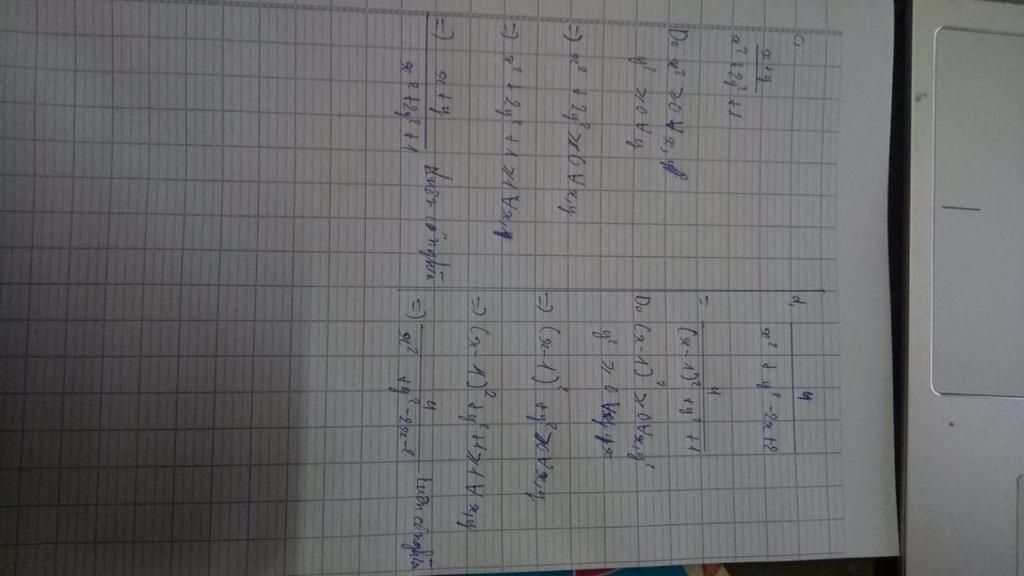 c,
x+y
x² + 2y² + 1
Do x² ≥ 0 ∀ x, y
y² ≥ 0 ∀ y
=) x² + 2y² ≥ 0 ∀ x, y
=) x² + 2y² + 1 ≥ 1 ∀ x, y
=) x+y
x² + 2y² + 1 luôn có nghĩa
d,
4
x² + y² - 2x + 2
= 4
(x - 1)² + y² + 1
Do (x - 1)² ≥ 0 ∀ x, y
y² ≥ 0 ∀
=) (x - 1)² + y² ≥ ∀ x, y
=) (x - 1)² + y² + 1 ≥ 1 ∀ x, y
=) 4
x² + y² - 2x - 2 luôn có nghĩa